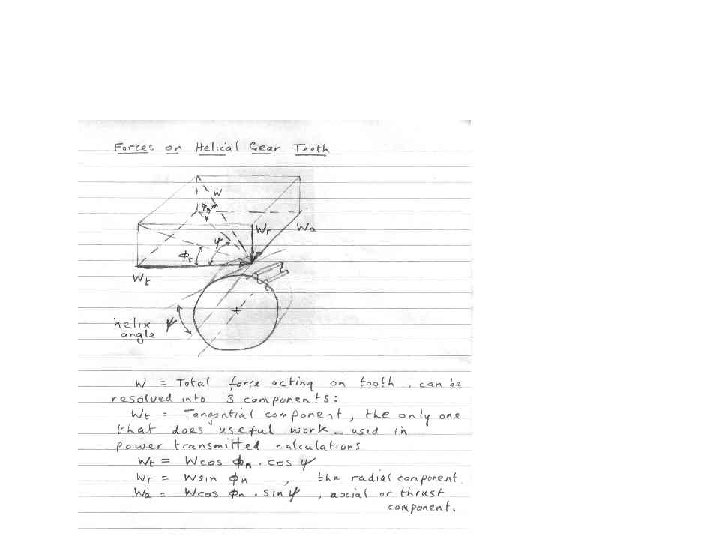 Forces on Helical Gear Tooth
W
Wr
Wa
ψ
ϕt
Wt
helix ψ
angle
W = Total force acting on tooth, can be
resolved into 3 components:
Wt = Tangential component, the only one
that does useful work – used in
power transmitted calculations
Wt = W cos ϕn . cos ψ
Wr = W sin ϕn , the radial component.
Wa = W cos ϕn . sin ψ , axial or thrust
component.